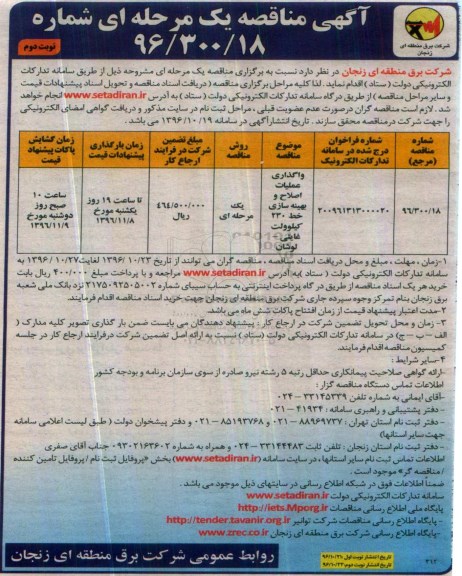 آگهی مناقصه یک مرحله ای شماره
۹۶/۳۰۰/۱۸
نوبت دوم
شرکت برق منطقه ای
زنجان
شرکت برق منطقه ای زنجان در نظر دارد نسبت به برگزاری مناقصه یک مرحله ای مشروحه ذیل از طریق سامانه تدارکات
الکترونیکی دولت (ستاد) اقدام نماید. لذا کلیه مراحل برگزاری مناقصه (دریافت اسناد مناقصه و تحویل اسناد پیشنهادات قیمت
و سایر مراحل مناقصه) از طریق درگاه سامانه تدارکات الکترونیکی دولت (ستاد) به آدرس www.setadiran.ir انجام خواهد
شد. لازم است مناقصه گران درصورت عدم عضویت قبلی، مراحل ثبت نام در سایت مذکور و دریافت گواهی امضای الکترونیکی
را جهت شرکت درمناقصه محقق سازند. تاریخ انتشارآگهی در سامانه ۱۳۹۶/۱۰/۱۹ می باشد.
شماره مناقصه (مرجع)
شماره فراخوان درج شده در سامانه تدارکات الکترونیک
موضوع مناقصه
روش مناقصه
مبلغ تضمین شرکت در فرایند ارجاع کار
زمان بارگذاری پیشنهادات قیمت
زمان گشایش پاکات پیشنهاد قیمت
۹۶/۳۰۰/۱۸
۲۰۰۹۶۱۳۱۳۰۰۰۰۲۰
واگذاری عملیات اصلاح و بهینه سازی خط ۲۳۰ کیلوولت غایتی لوشان
یک مرحله ای
۴۶۱/۵۰۰/۰۰۰ ریال
تا ساعت ۱۹ روز یکشنبه مورخ ۱۳۹۶/۱۱/۸
ساعت ۱۰ صبح روز دوشنبه مورخ ۱۳۹۶/۱۱/۹
۱-زمان، مهلت، مبلغ و محل دریافت اسناد مناقصه، مناقصه گران می توانند از تاریخ ۱۳۹۶/۱۰/۲۳ لغایت ۱۳۹۶/۱۰/۲۷ به
سامانه تدارکات الکترونیکی دولت (ستاد) به آدرس www.setadiran.ir مراجعه و با پرداخت مبلغ ۴۰۰/۰۰۰ ریال بابت
خرید هر یک اسناد مناقصه از طریق درگاه پرداخت اینترنتی به حساب سیبای شماره ۲۱۷۵۰۹۲۵۰۵۰۰۲ نزد بانک ملی شعبه
برق زنجان بنام تمرکز وجوه سپرده جاری شرکت برق منطقه ای زنجان جهت خرید اسناد مناقصه اقدام فرمایند.
۲-مدت اعتبار پیشنهاد قیمت از زمان افتتاح پاکات شش ماه می باشد.
۳- زمان و محل تحویل تضمین شرکت در ارجاع کار: پیشنهاد دهندگان می بایست ضمن بار گذاری تصویر کلیه مدارک (
الف – ب – ج) در سامانه تدارکات الکترونیکی دولت (ستاد) نسبت به ارائه اصل تضمین شرکت درفرایند ارجاع کار در جلسه
کمیسیون مناقصه اقدام فرمایند.
۴-سایر شرایط:
-ارائه گواهی صلاحیت پیمانکاری حداقل رتبه ۵ رشته نیرو صادره از سوی سازمان برنامه و بودجه کشور
اطلاعات تماس دستگاه مناقصه گزار:
-آقای ایمانی به شماره تلفن ۳۳۱۴۵۳۳۹-۰۲۴
- دفتر پشتیبانی و راهبری سامانه: ۴۱۹۳۴-۰۲۱
- دفتر ثبت نام استان تهران: ۸۸۹۶۹۷۳۷-۰۲۱ و ۸۵۱۹۳۷۶۸-۰۲۱ و دفتر پیشخوان دولت (طبق لیست اعلامی سامانه
جهت سایر استانها)
- دفتر ثبت نام استان زنجان: تلفن ثابت ۳۳۱۴۴۴۸۳-۰۲۴ و همراه به شماره ۰۹۳۰۲۱۶۳۶۰۲ جناب آقای صفری
اطلاعات تماس ثبت نام سایر استانها، در سایت سامانه (www.setadiran.ir) بخش «پروفایل ثبت نام / پروفایل تامین کننده
/مناقصه گر» موجود است.
ضمناً اطلاعات فوق در شبکه اطلاع رسانی در سایتهای ذیل موجود می باشد.
سامانه تدارکات الکترونیکی دولت www.setadiran.ir
پایگاه ملی اطلاع رسانی مناقصات http://iets.Mporg.ir
-پایگاه اطلاع رسانی مناقصات شرکت توانیر http://tender.tavanir.org.ir
-پایگاه اطلاع رسانی شرکت برق منطقه ای زنجان www.zrec.co.ir
روابط عمومی شرکت برق منطقه ای زنجان
تاریخ انتشار نوبت اول ۹۶/۱۰/۲۱
تاریخ انتشار نوبت دوم ۹۶/۱۰/۲۳
۳۱۲